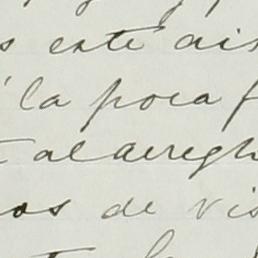 s este ais
la poca f
t al arregl
os de vis